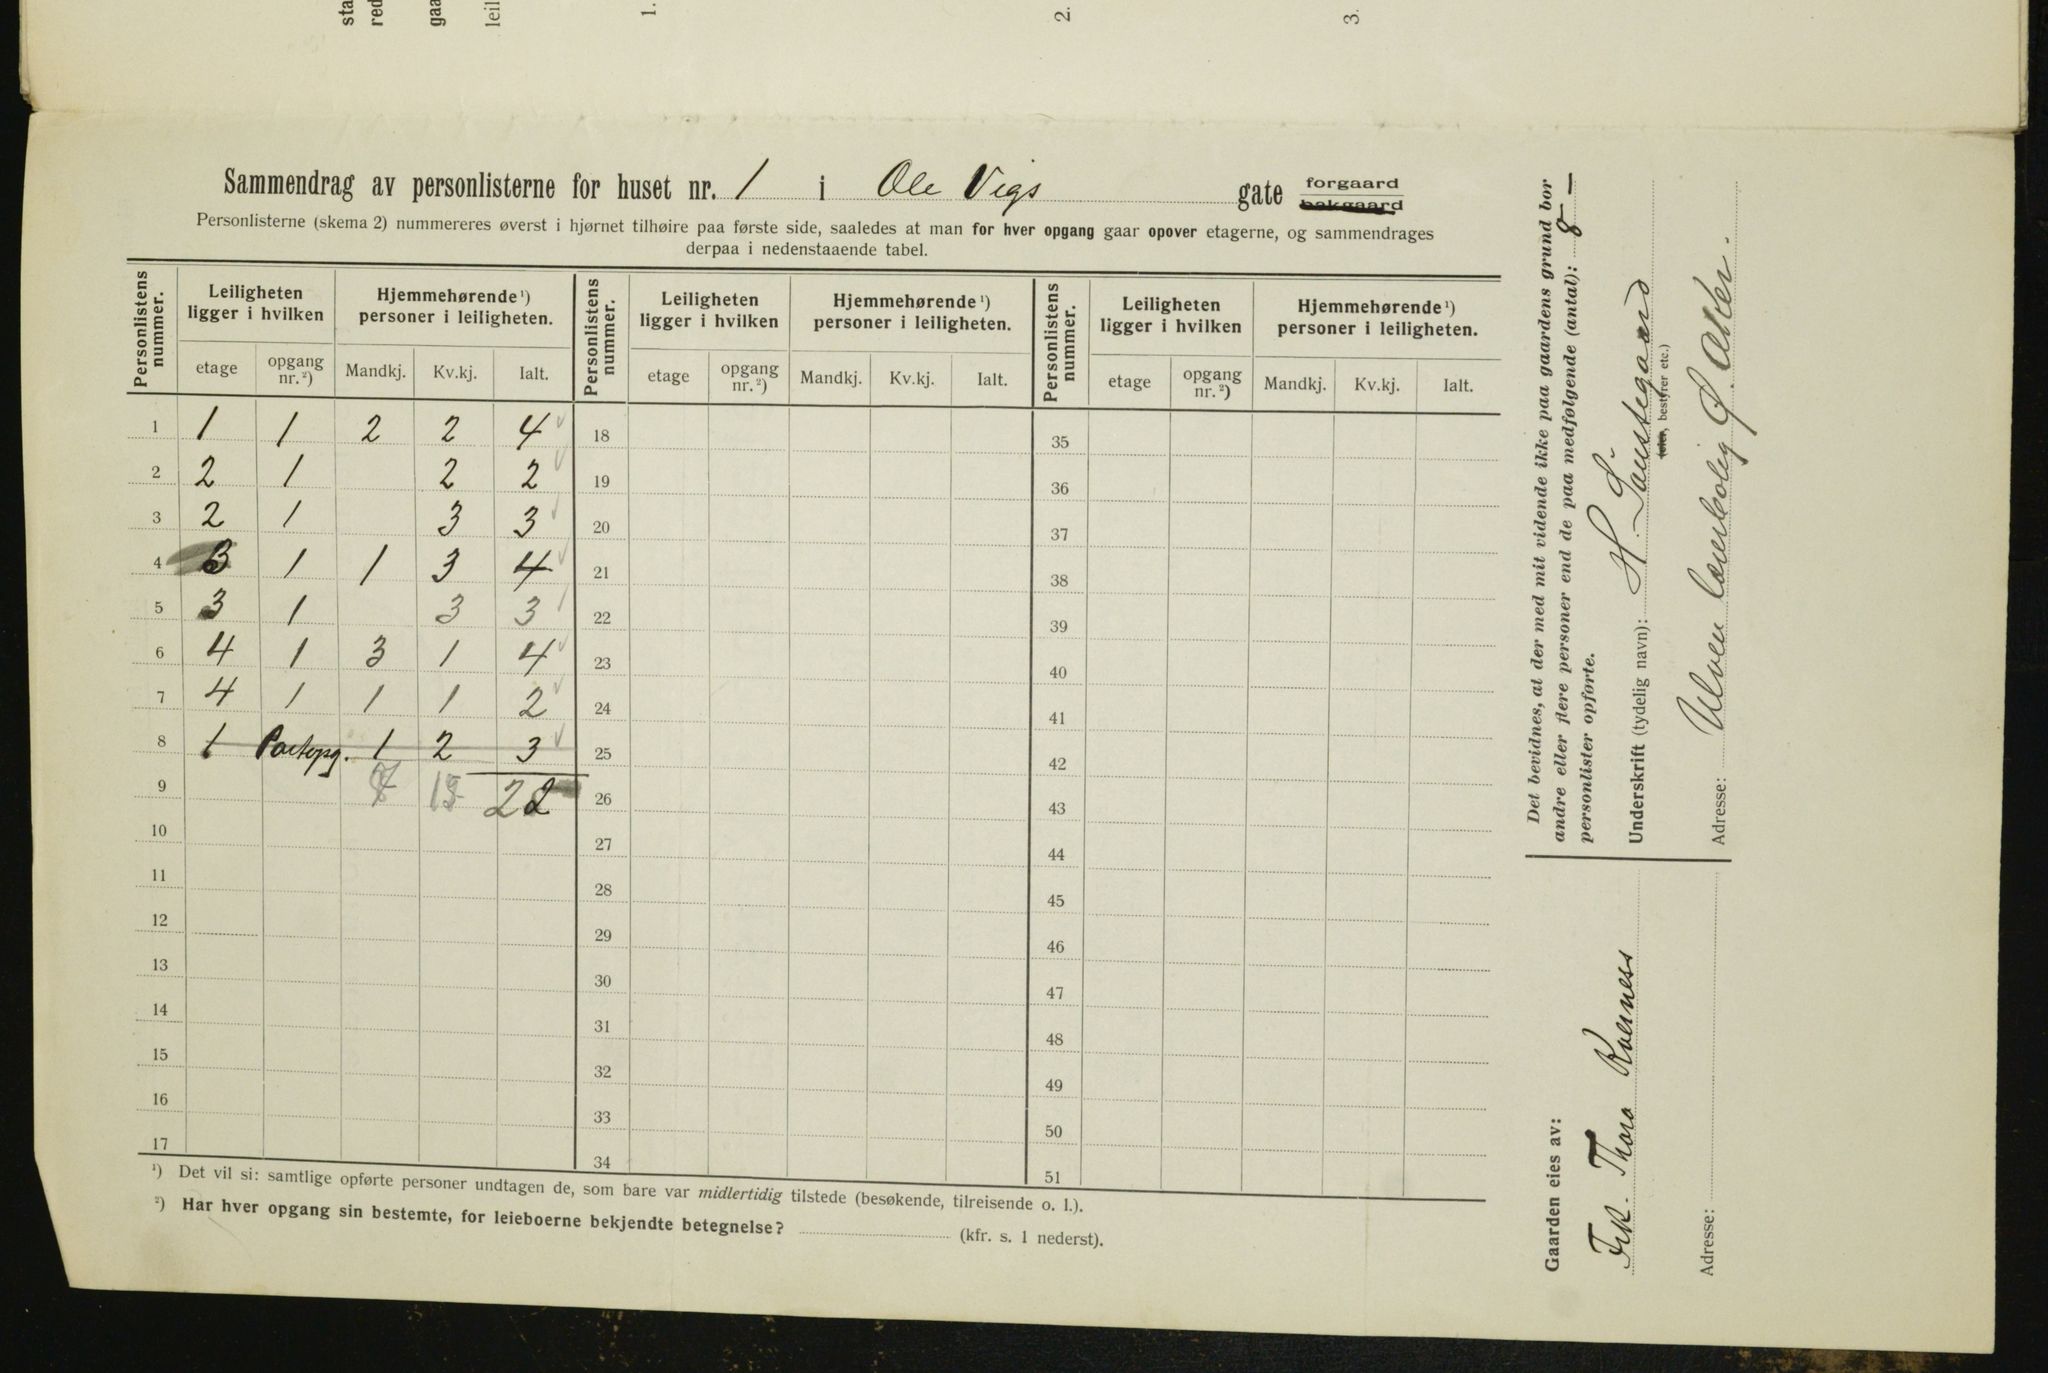 sta
red
gaa
leil
1.
2.
3.
Sammendrag av personlisterne for huset nr. 1 i Ole Vigs gate forgaard bakgaard
Personlisterne (skema 2) nummereres øverst i hjørnet tilhøire paa første side, saaledes at man for hver opgang gaar opover etagerne, og sammendrages
derpaa i nedenstaaende tabel.
Personlistens nummer. Leiligheten ligger i hvilken Hjemmehørende ¹) personer i leiligheten. Personlistens nummer. Leiligheten ligger i hvilken Hjemmehørende ¹) personer i leiligheten. Personlistens nummer. Leiligheten ligger i hvilken Hjemmehørende ¹) personer i leiligheten.
etage opgang nr. ²) Mandkj. Kv.kj. Ialt. etage opgang nr. ²) Mandkj. Kv.kj. Ialt. etage opgang nr. ²) Mandkj. Kv.kj. Ialt.
1 1 1 2 2 4 18 35
2 2 1 2 2 19 36
3 2 1 3 3 20 37
4 3 1 1 3 4 21 38
5 3 1 3 3 22 39
6 4 1 3 1 4 23 40
7 4 1 1 1 2 24 41
8 1 Portopg. 1 2 3 25 42
9 22 26 43
10 27 44
11 28 45
12 29 46
13 30 47
14 31 48
15 32 49
16 33 50
17 34 51
¹) Det vil si: samtlige opførte personer undtagen de, som bare var midlertidig tilstede (besøkende, tilreisende o. l.).
²) Har hver opgang sin bestemte, for leieboerne bekjendte betegnelse? (kfr. s. 1 nederst).
Det bevidnes, at der med mit vidende ikke paa gaardens grund bor
andre eller flere personer end de paa medfølgende (antal): 8 —
personlister opførte.
Underskrift (tydelig navn): H.
bestyrer etc.)
Adresse: Ulven Ø. Aker.
Gaarden eies av:
Frk. Thora
Adresse: